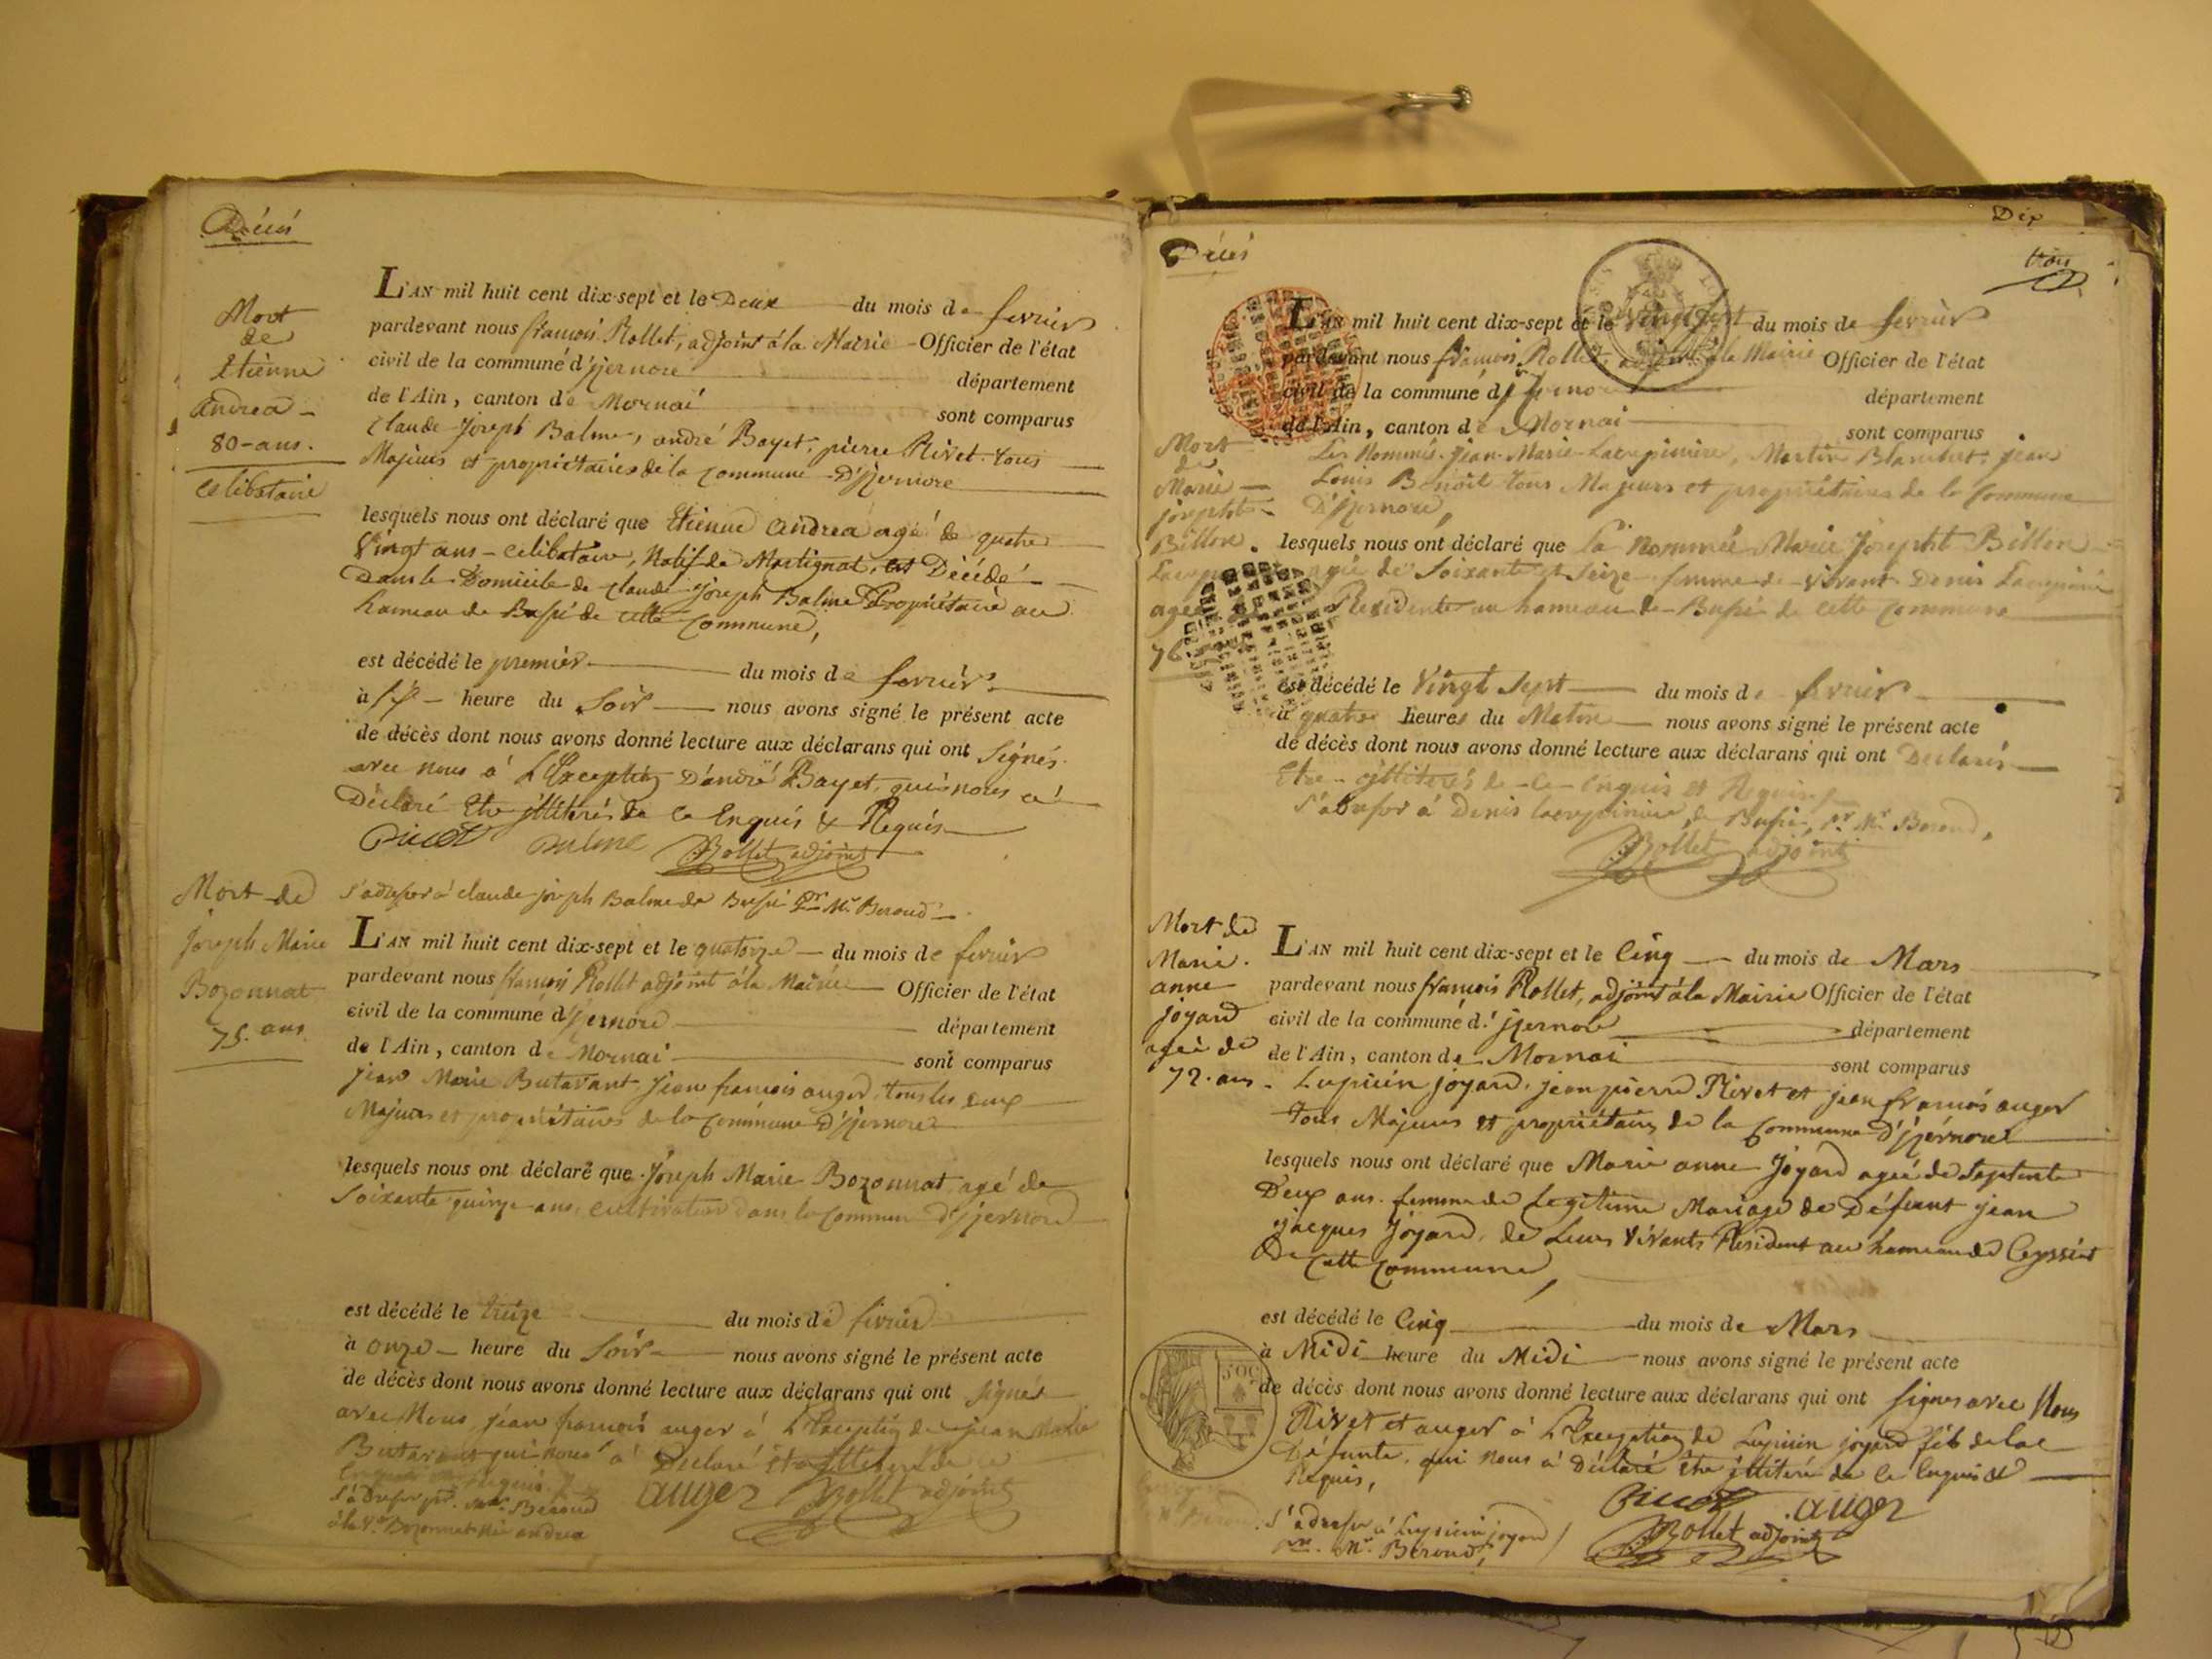 Décés
Mort
de
Etienne
andrea
80-ans.
Celibataire
L'AN mil huit cent dix-sept et le Deux du mois de fevrier
pardevant nous francois Rollet, adjoint á la Mairie Officier de l'état
civil de la commune d'jzernore département
de l'Ain, canton de Mornai sont comparus
Claude Joseph Balme, andré Bayet, pierre Rivet tous
Majeurs et propriétaires de la Commune D'jzernore
lesquels nous ont déclaré que Etienne andrea agé de quatre
Vingt ans - Celibataire, Natif de Martignat, est Décédé
Dans le Domicile de Claude Joseph Balme Propriétaire au
hameau de Bussi de cette Commune,
est décédé le premier du mois de fevrier
à heure du Soir nous avons signé le présent acte
de décès dont nous avons donné lecture aux déclarans qui ont Signés
avec nous à L'Exception D'andré Bayet, qui nous a
Déclaré Etre jlliterés de ce Enquis & Requis
Balme Rollet adjoint
S'adresser á Claude joseph Balme de Bussi pr. Mr. Beroud
Mort de
Joseph Marie
Bozonnat
75. ans
L'AN mil huit cent dix-sept et le quatorze du mois de fevrier
pardevant nous francois Rollet adjoint á la Mairie Officier de l'état
civil de la commune d'jzernore département
de l'Ain, canton de Mornai sont comparus
jean Marie Butavant, Jean francois auger, tous les deux
Majeurs et propriétaires de la Commune D'jzernore
lesquels nous ont déclaré que Joseph Marie Bozonnat agé de
Soixante quinze ans, cultivateur dans la Commune D'jzernore
est décédé le treize du mois de fevrier
à onze heure du Soir nous avons signé le présent acte
de décès dont nous avons donné lecture aux déclarans qui ont signés
avec Nous jean francois auger à L'Exception de jean Marie
Butavant qui nous a Declaré Etre jlliteré de ce
Enquis & Requis
S'adresser pr. Mr. Beroud
à la Ve. Bozonnat née andrea
auger Rollet adjoint
Dix
Décés
trois
L'AN mil huit cent dix-sept et le Vingt Sept du mois de fevrier
pardevant nous francois Rollet adjoint á la Mairie Officier de l'état
civil de la commune d'jzernore département
de l'Ain, canton de Mornai sont comparus
Mort
de
Marie
josephte
Billon
agée
76
Les Nommés jean Marie Lacrepiniere, Martin Blanchet, jean
Louis Benoit tous Majeurs et propriétaires de la Commune
D'jzernore,
lesquels nous ont déclaré que la nommée Marie Josephte Billon
agée de Soixante et Seize femme de Vivant Denis
Residente au hameau de Bussi de cette Commune
est décédé le Vingt Sept du mois de fevrier
à quatre heures du Matin nous avons signé le présent acte
de décès dont nous avons donné lecture aux déclarans qui ont Declarés
Etre jlliterés de ce Enquis et Requis
S'adresser à Denis lacrepiniere de Bussi, pr. Mr. Beroud,
Rollet adjoint
Mort de
Marie
anne
joyard
agée de
72. ans
L'AN mil huit cent dix-sept et le Cinq du mois de Mars
pardevant nous francois Rollet, adjoint á la Mairie Officier de l'état
civil de la commune d'jzernore département
de l'Ain, canton de Mornai sont comparus
Lupicin joyard, jean pierre Rivet et jean francois auger
tous Majeurs et propriétaires de la Commune D'jzernore
lesquels nous ont déclaré que Marie anne Joyard agée de Septente
Deux ans femme de Legitime Mariage de Défunt jean
jacques Joyard, de Leurs Vivants Resident au hameau de Ceyssiat
De Cette Commune,
est décédé le Cinq du mois de Mars
à Midi heure du Midi nous avons signé le présent acte
de décès dont nous avons donné lecture aux déclarans qui ont Signés avec Nous
Rivet et auger à L'Exception de Lupicin joyard fils de la
Défunte, qui nous à Déclaré Etre jlliteré de ce Enquis &
Requis,
auger
S'adresser à Lupicin joyard
pr. Mr. Beroud,
Rollet adjoint